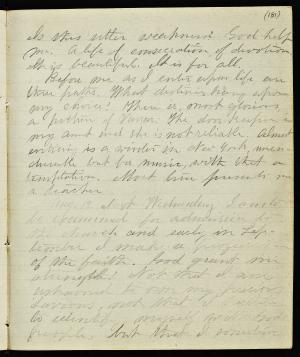 (151)
Is this utter weakness? God help
me. A life of consecration of devotion
It is beautiful. It is for all.
Before me as I enter upon life are
three paths. What destinies hang upon
my choice! There is, most glorious
a position of Vassar. The door keeper is
my aunt and she is not reliable. Almost
is a winter in New York,
but for music, with that a
temptation. Most line presents me
a teacher
19 Last Wednesday I
be examined for admission to
the church and early in Sep-
tember I make a
of the faith. God grant me
strength! Not that I am
ashamed to own my precious
Saviour, not that I
to identify myself with God's
people, but that I sometimes